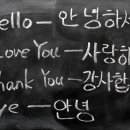 ello – 안녕하
Love You – 사랑하
hank You – 감사합
ye – 안녕